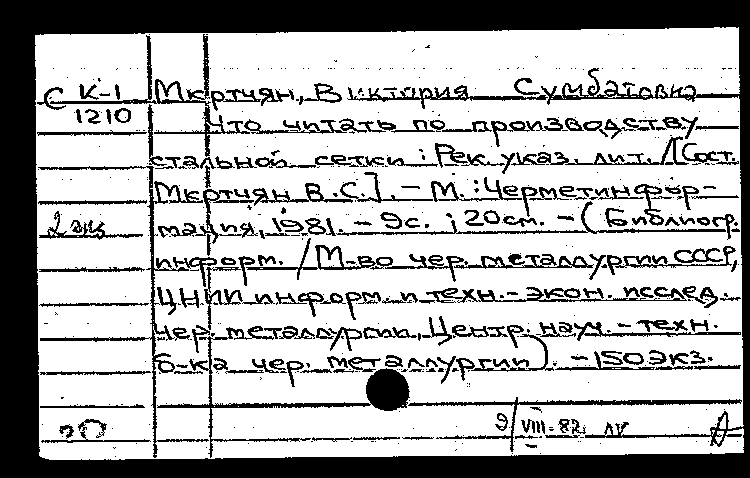 С К-1 Мкртчян, Виктория Сумбатовна
1210 Что читать по производству
стальной сетки : Рек. указ. лит. /[Сост.
Мкртчян В.С.]. - М. : Черметинфор-
2 экз мация, 1981. - 9с. ; 20см. - (Библиогр.
информ. / М-во чер. металлургии СССР,
ЦНИИ информ. и техн.-экон. исслед.
чер. металлургии, Центр. науч.-техн.
б-ка чер. металлургии). - 150 экз.
9/VIII-82